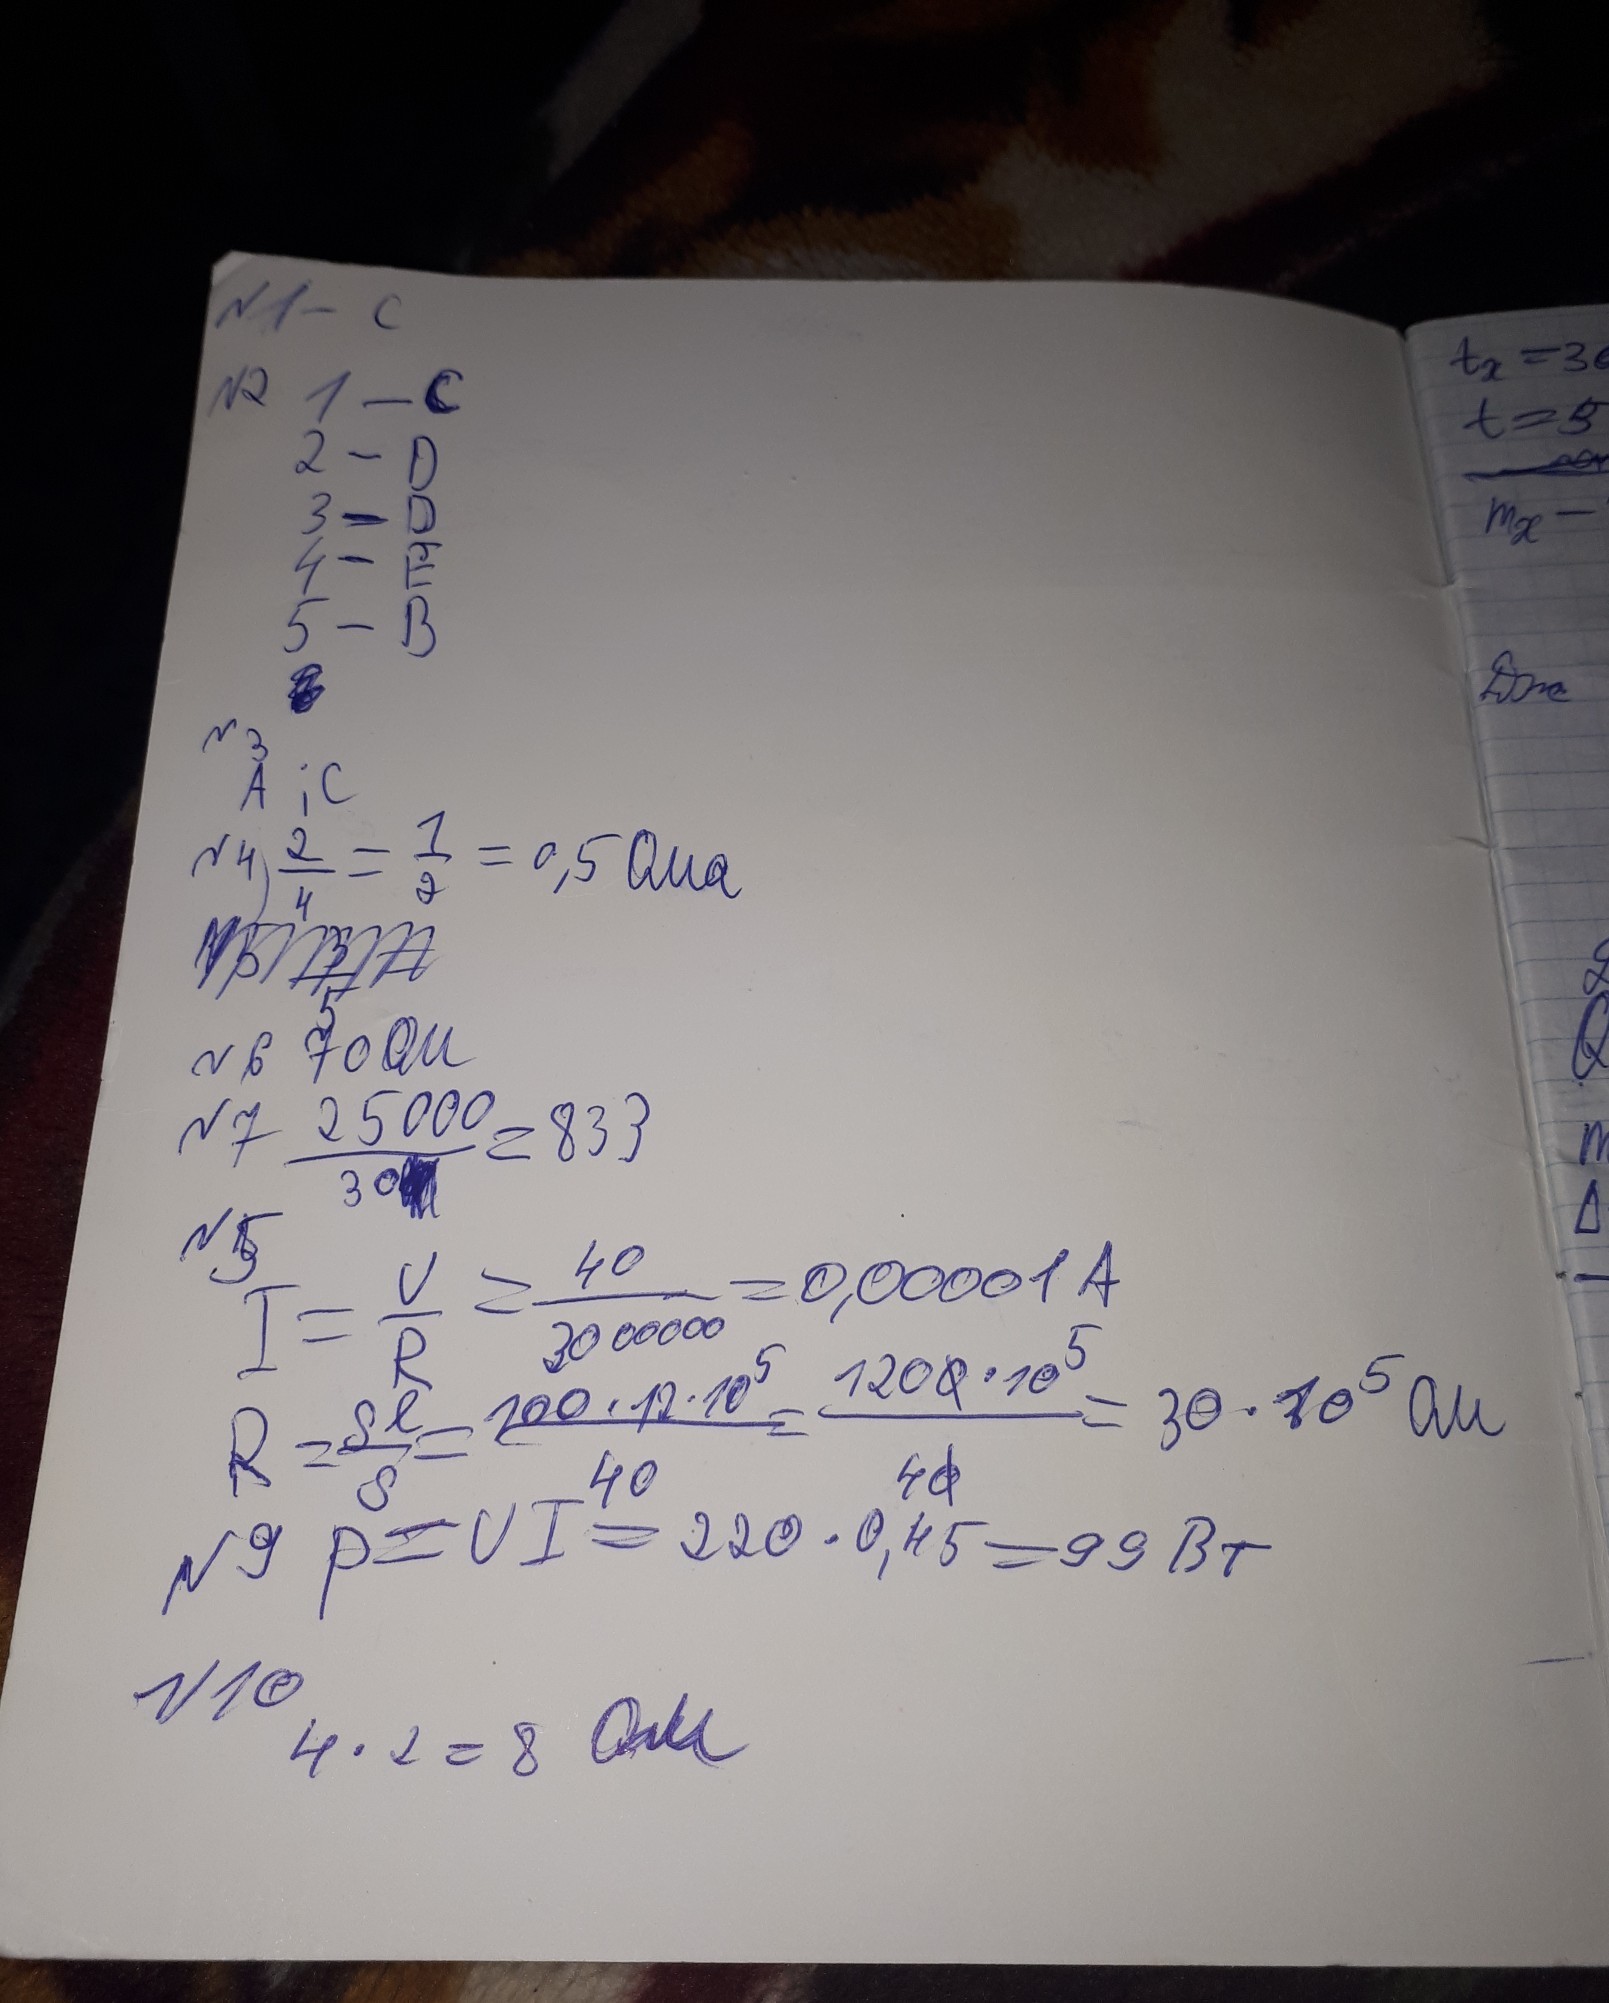 N1 - C
N2 1 - C
2 - D
3 - D
4 - E
5 - B
N3
A і C
N4) 2/4 = 1/2 = 0,5 Ома
N6 70 Ом
N7 25000/30 = 833
N5
I = U/R = 40/3000000 = 0,00001 A
R = Sl/S = 100·12·10⁵/40 = 1200·10⁵/40 = 30·10⁵ Ом
N9 P = UI = 220·0,45 = 99 Вт
N10
4·2 = 8 Ом
tₓ = 30
t = 5
mₓ -